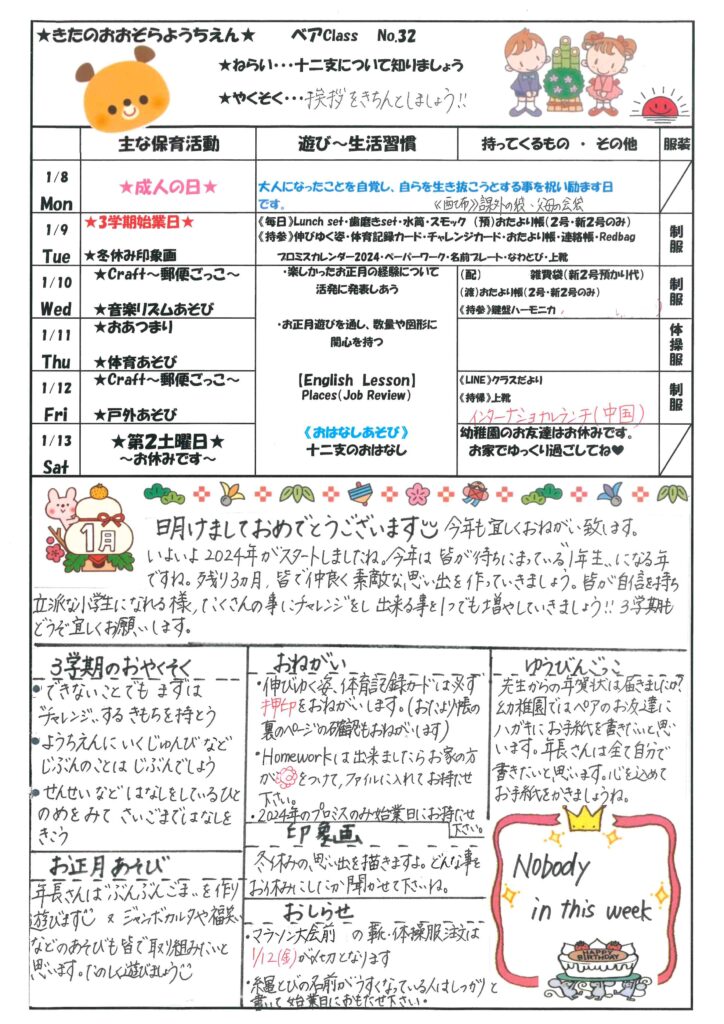 ★きたのおおぞらようちえん★ ベアClass No.32
★ねらい･･･十二支について知りましょう
★やくそく･･･挨拶をきちんとしましょう!!
主な保育活動 遊び～生活習慣 持ってくるもの ・ その他 服装
1/8
Mon
★成人の日★
大人になったことを自覚し、自らを生き抜こうとする事を祝い励ます日
です。
1/9
Tue
★3学期始業日★
★冬休み印象画
《毎日》Lunch set・歯磨きset・水筒・スモック (預)おたより帳(2号・新2号のみ)
《持参》伸びゆく姿・体育記録カード・チャレンジカード・おたより帳・連絡帳・Redbag
プロミスカレンダー2024・ペーパーワーク・名前プレート・なわとび・上靴
制服
1/10
Wed
★Craft～郵便ごっこ～
★音楽リズムあそび
・楽しかったお正月の経験について
活発に発表しあう
(配) 雑費袋(新2号預かり代)
(渡)おたより帳(2号・新2号のみ)
《持参》鍵盤ハーモニカ
制服
1/11
Thu
★おあつまり
★体育あそび
・お正月遊びを通し、数量や図形に
関心を持つ
体操服
1/12
Fri
★Craft～郵便ごっこ～
★戸外あそび
【English Lesson】
Places(Job Review)
《LINE》クラスだより
《持帰》上靴
インターナショナルランチ(中国)
制服
1/13
Sat
★第2土曜日★
～お休みです～
《おはなしあそび》
十二支のおはなし
幼稚園のお友達はお休みです。
お家でゆっくり過ごしてね♥
1月
明けましておめでとうございます 今年も宜しくおねがい致します。
いよいよ2024年がスタートしましたね。今年は皆が待ちにまっている"1年生"になる年
ですね。残り3ヵ月、皆で仲良く素敵な思い出を作っていきましょう。皆が自信を持ち
立派な小学生になれる様、たくさんの事にチャレンジをし出来る事を1つでも増やしていきましょう!! 3学期も
どうぞ宜しくお願いします。
3学期のおやくそく
・できないことでも まずは
"チャレンジ"するきもちを持とう
・ようちえんに いくじゅんび など
じぶんのことは じぶんでしよう
・せんせい など はなしをしているひと
のめをみて さいごまではなしを
きこう
お正月あそび
年長さんは"ぶんぶんごま"を作り
遊びます ジャンボカルタや福笑い
などのあそびも皆で取り組みたいと
思います。たのしく遊びましょう
おねがい
・伸びゆく姿、体育記録カードは必ず
押印をおねがいします。(おたより帳の
裏のページの確認もおねがいします)
・Homeworkは出来ましたらお家の方
が をつけて、ファイルに入れてお持たせ
下さい。
・2024年のプロミスのみ始業日にお持たせ
下さい。
印象画
冬休みの思い出を描きますよ。どんな事を
お休みにしたか聞かせて下さいね。
おしらせ
・マラソン大会前 の靴・体操服注文は
1/12(金)が〆切となります
・縄とびの名前がうすくなっている人はしっかりと
書いて始業日におもたせ下さい。
ゆうびんごっこ
先生からの年賀状は届きましたか?
幼稚園ではペアのお友達に
ハガキにお手紙を書きたいと思
います。年長さんは全て自分で
書きたいと思います。心を込めて
お手紙をかきましょうね。
Nobody
in this week
HAPPY BIRTHDAY